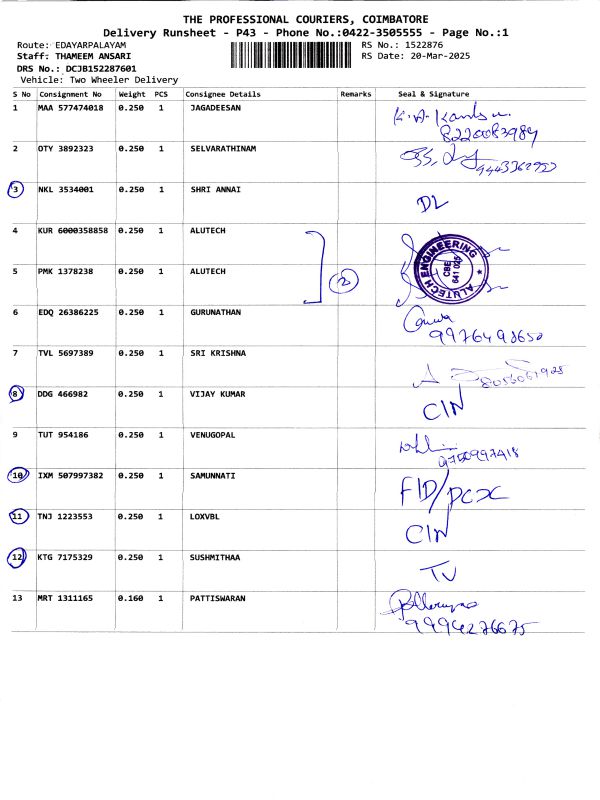 THE PROFESSIONAL COURIERS, COIMBATORE
Delivery Runsheet - P43 - Phone No.:0422-3505555 - Page No.:1
Route: EDAYARPALAYAM RS No.: 1522876
Staff: THAMEEM ANSARI RS Date: 20-Mar-2025
DRS No.: DCJB152287601
Vehicle: Two Wheeler Delivery
S No Consignment No Weight PCS Consignee Details Remarks Seal & Signature
1 MAA 577474018 0.250 1 JAGADEESAN
2 OTY 3892323 0.250 1 SELVARATHINAM
3 NKL 3534001 0.250 1 SHRI ANNAI
DL
4 KUR 6000358858 0.250 1 ALUTECH
2
ALUTECH ENGINEERING CBE 641 025
5 PMK 1378238 0.250 1 ALUTECH
6 EDQ 26386225 0.250 1 GURUNATHAN
7 TVL 5697389 0.250 1 SRI KRISHNA
8 DDG 466982 0.250 1 VIJAY KUMAR
CIN
9 TUT 954186 0.250 1 VENUGOPAL
10 IXM 507997382 0.250 1 SAMUNNATI
11 TNJ 1223553 0.250 1 LOXVBL
CIN
12 KTG 7175329 0.250 1 SUSHMITHAA
13 MRT 1311165 0.160 1 PATTISWARAN
9994276675